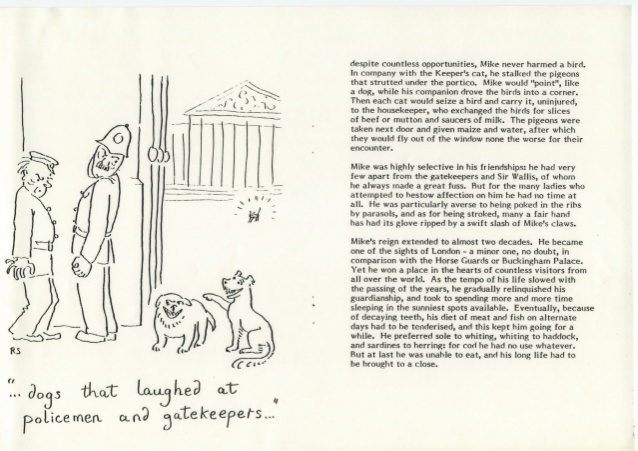 RS
"... dogs that laughed at
policemen and gatekeepers..."
despite countless opportunities, Mike never harmed a bird.
In company with the Keeper's cat, he stalked the pigeons
that strutted under the portico. Mike would "point", like
a dog, while his companion drove the birds into a corner.
Then each cat would seize a bird and carry it, uninjured,
to the housekeeper, who exchanged the birds for slices
of beef or mutton and saucers of milk. The pigeons were
taken next door and given maize and water, after which
they would fly out of the window none the worse for their
encounter.
Mike was highly selective in his friendships: he had very
few apart from the gatekeepers and Sir Wallis, of whom
he always made a great fuss. But for the many ladies who
attempted to bestow affection on him he had no time at
all. He was particularly averse to being poked in the ribs
by parasols, and as for being stroked, many a fair hand
has had its glove ripped by a swift slash of Mike's claws.
Mike's reign extended to almost two decades. He became
one of the sights of London - a minor one, no doubt, in
comparison with the Horse Guards or Buckingham Palace.
Yet he won a place in the hearts of countless visitors from
all over the world. As the tempo of his life slowed with
the passing of the years, he gradually relinquished his
guardianship, and took to spending more and more time
sleeping in the sunniest spots available. Eventually, because
of decaying teeth, his diet of meat and fish on alternate
days had to be tenderised, and this kept him going for a
while. He preferred sole to whiting, whiting to haddock,
and sardines to herring: for cod he had no use whatever.
But at last he was unable to eat, and his long life had to
be brought to a close.